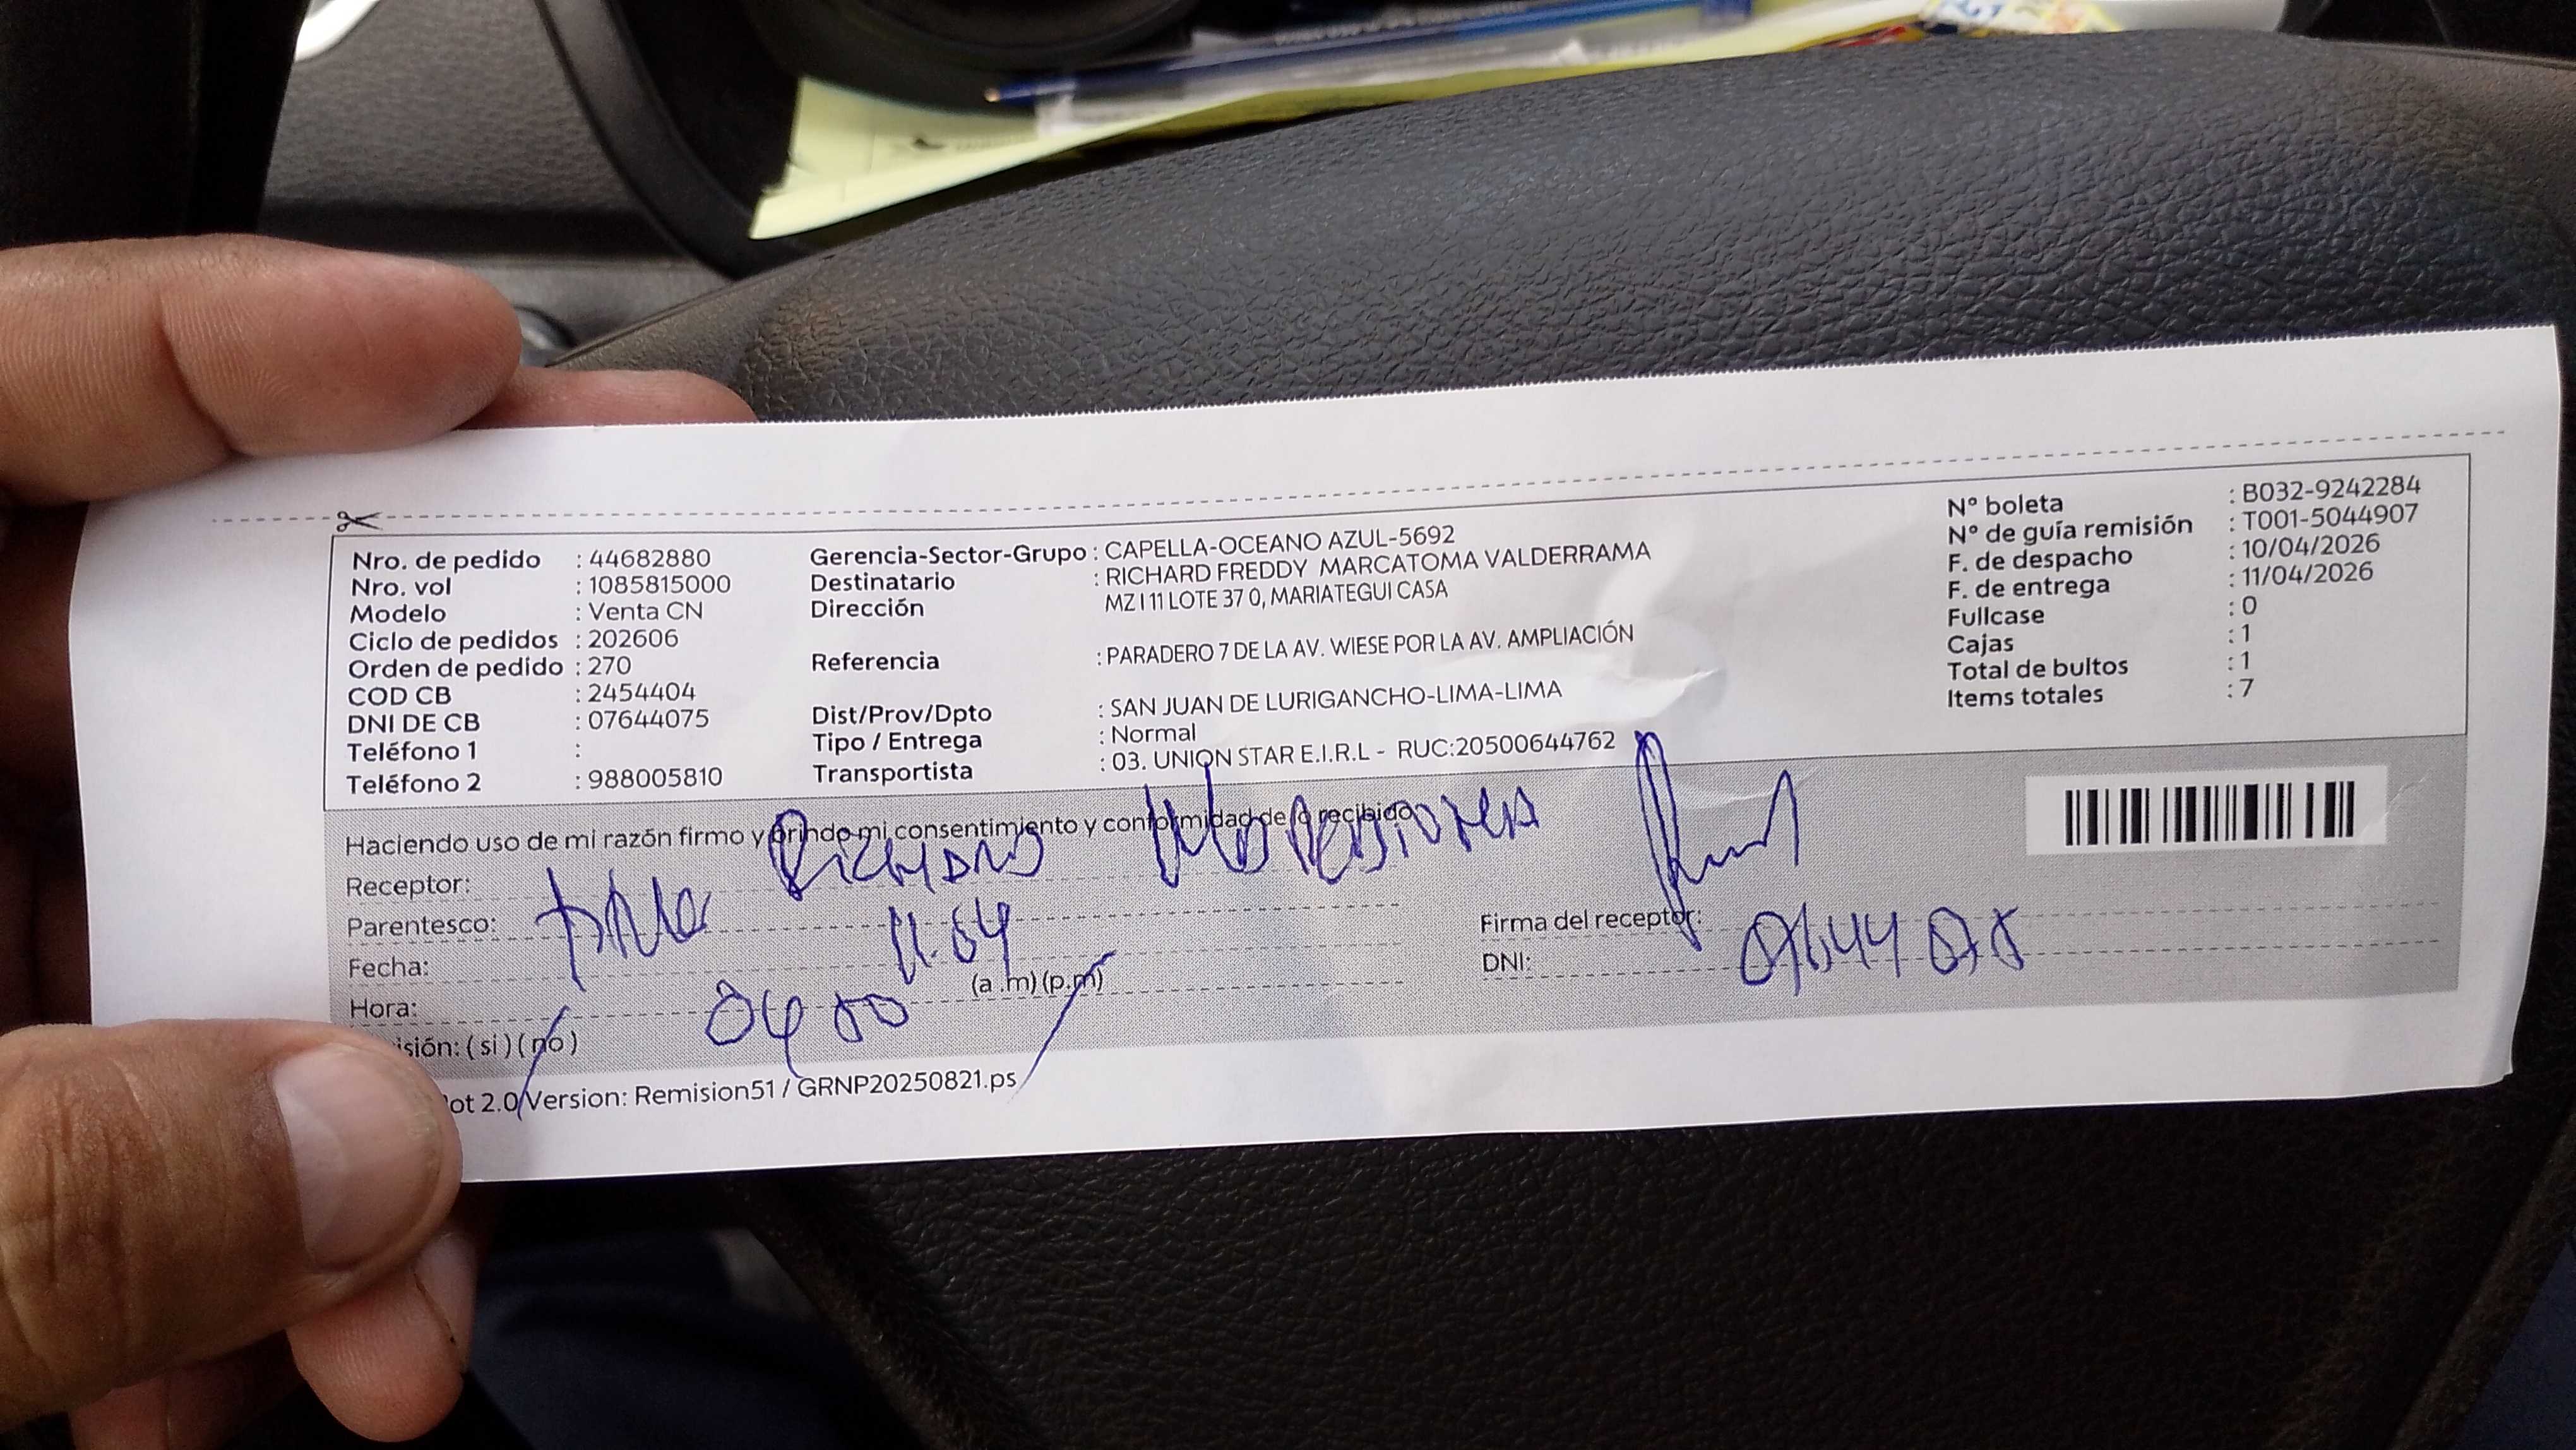 Nro. de pedido : 44682880
Nro. vol : 1085815000
Modelo : Venta CN
Ciclo de pedidos : 202606
Orden de pedido : 270
COD CB : 2454404
DNI DE CB : 07644075
Teléfono 1 :
Teléfono 2 : 988005810
Gerencia-Sector-Grupo : CAPELLA-OCEANO AZUL-5692
Destinatario : RICHARD FREDDY MARCATOMA VALDERRAMA
Dirección MZ I 11 LOTE 37 0, MARIATEGUI CASA
Referencia : PARADERO 7 DE LA AV. WIESE POR LA AV. AMPLIACIÓN
Dist/Prov/Dpto : SAN JUAN DE LURIGANCHO-LIMA-LIMA
Tipo / Entrega : Normal
Transportista : 03. UNION STAR E.I.R.L - RUC:20500644762
Nº boleta : B032-9242284
Nº de guía remisión : T001-5044907
F. de despacho : 10/04/2026
F. de entrega : 11/04/2026
Fullcase : 0
Cajas : 1
Total de bultos : 1
Items totales : 7
Haciendo uso de mi razón firmo y brindo mi consentimiento y conformidad de lo recibido
Receptor: Richard
Parentesco:
Fecha: 11.04
Hora: (a.m) (p.m)
isión: (si) (no)
Firma del receptor:
DNI:
ot 2.0/Version: Remision51 / GRNP20250821.ps